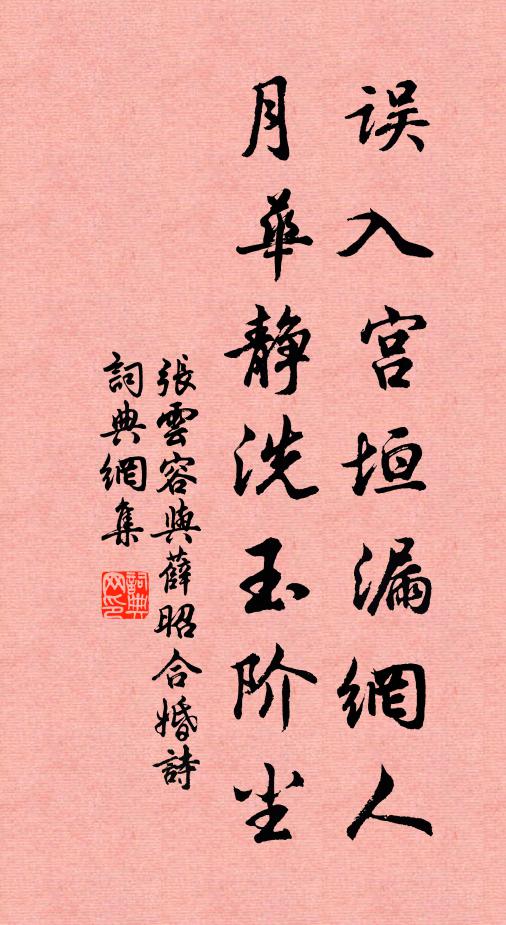 误入宫垣漏網人
月華静洗玉阶尘
張雲容與薛昭合婚詩
詞典網集
詞典网印